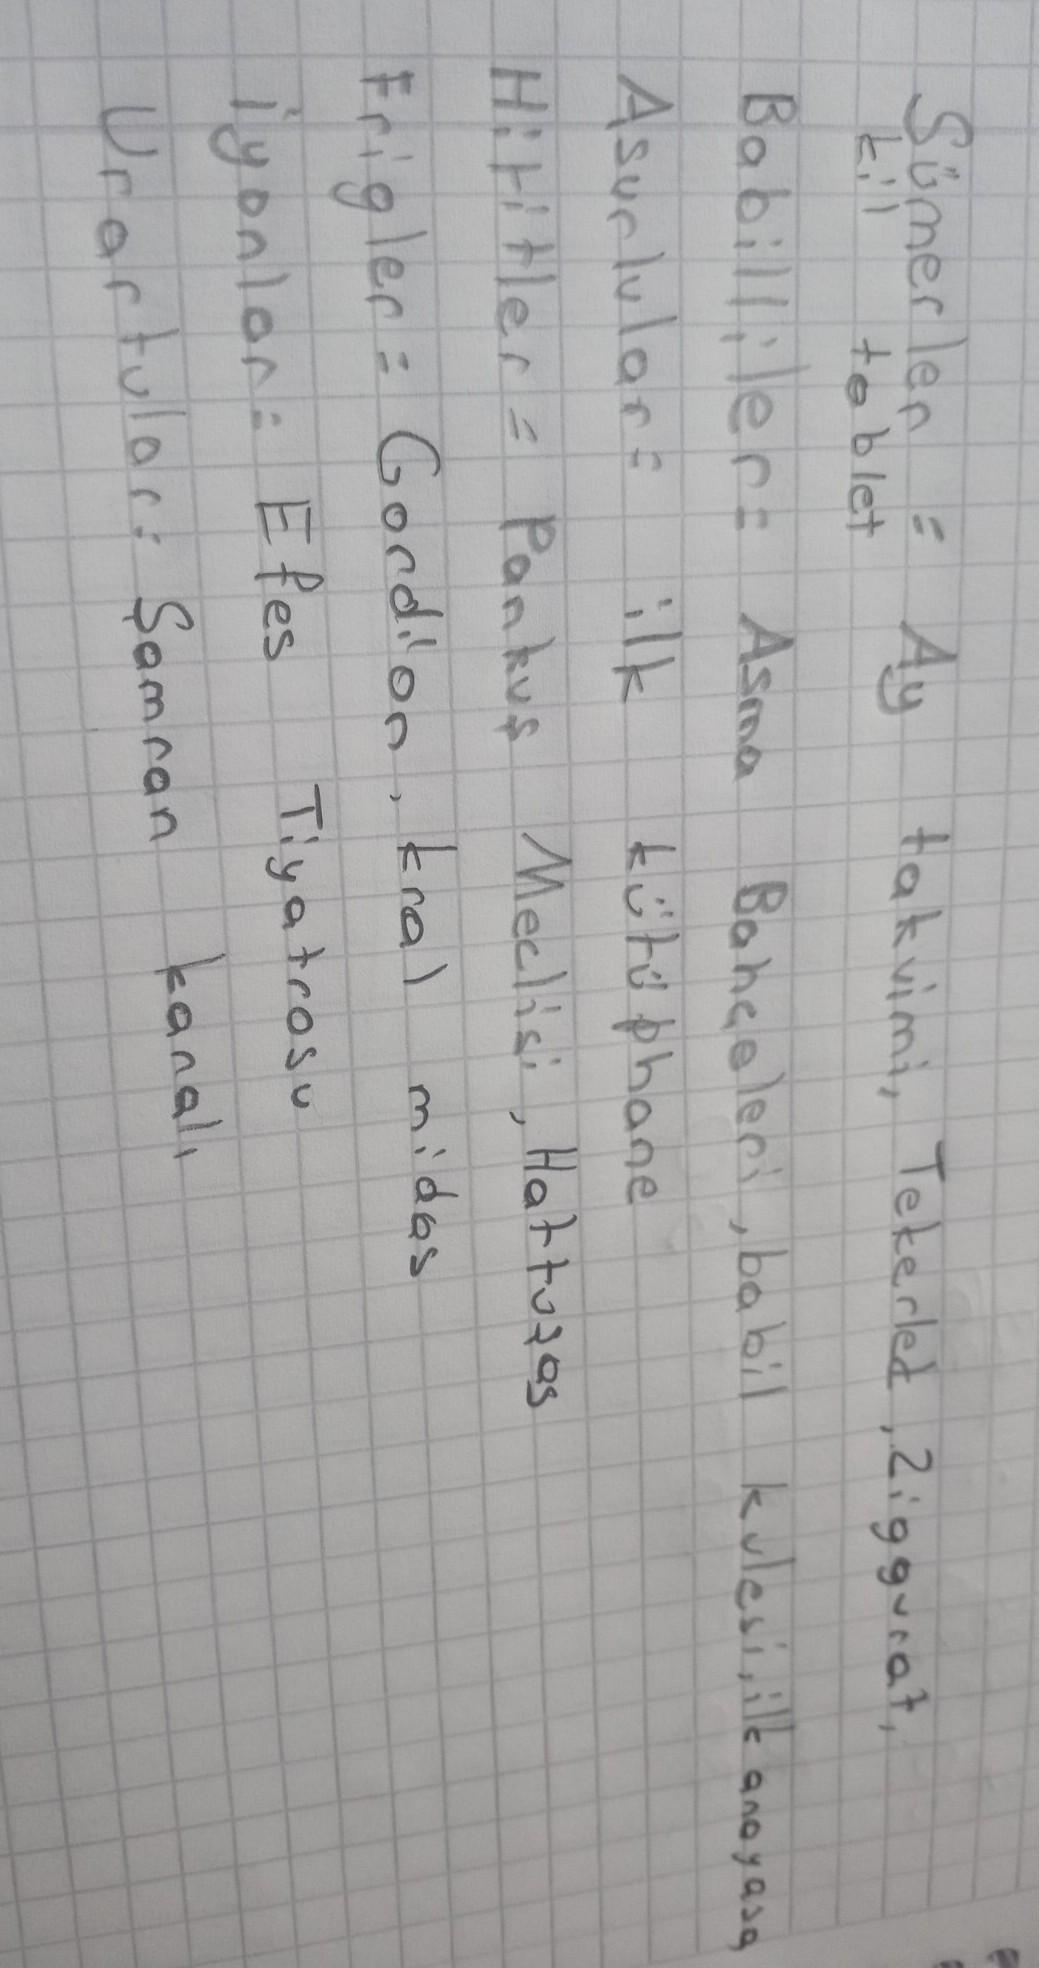 Sümerler = Ay takvimi, Tekerlek, Ziggurat,
kil tablet
Babilliler = Asma Bahçeleri, babil kulesi, ilk anayasa
Asurlular = ilk kütüphane
Hititler = Pankuş Meclisi, Hattuşas
Frigler = Gordion, kral midas
İyonlar = Efes Tiyatrosu
Urartular = Şamran kanalı